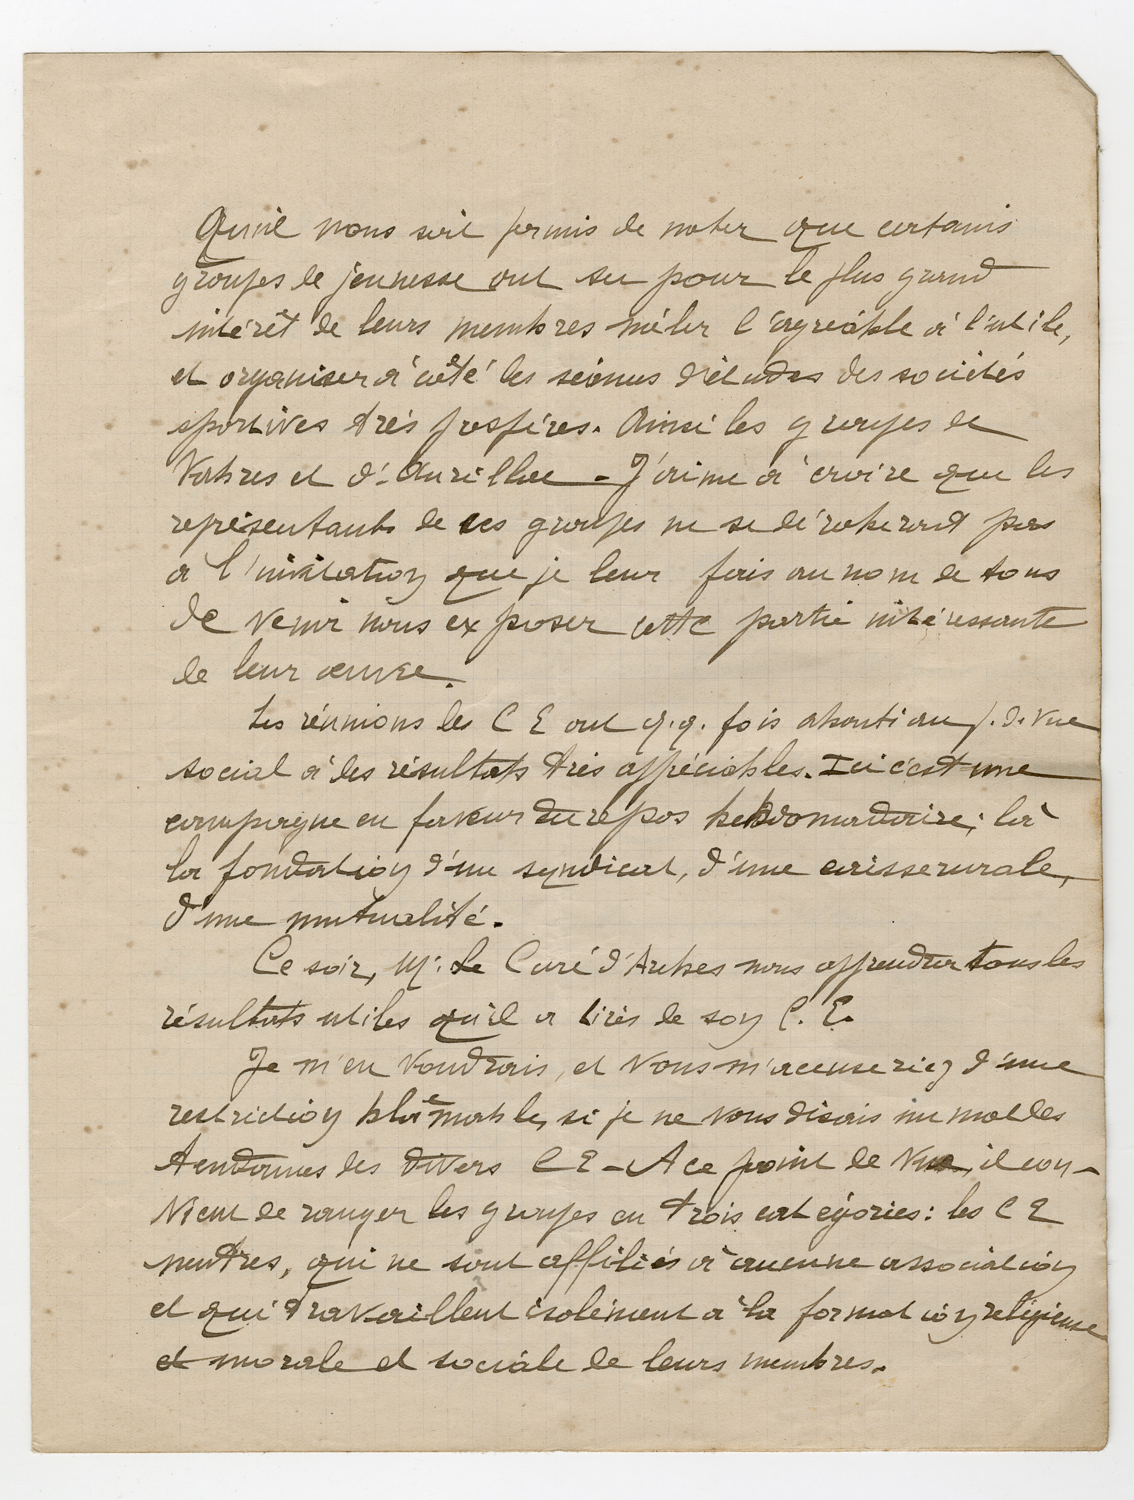 Qu'il nous soit permis de noter que certains
groupes de jeunesse ont su pour le plus grand
intérêt de leurs membres mêler l'agréable à l'utile,
et organiser à côté les séances d'études des sociétés
sportives très prospères. Ainsi les groupes de
Vabres et d'Aurillac - J'aime à croire que les
représentants de ces groupes ne se déroberont pas
à l'invitation que je leur fais au nom de tous
de venir nous exposer cette partie intéressante
de leur œuvre.
Les réunions des C E ont q.q. fois abouti au p. d. vue
social à des résultats très appréciables. Ici c'est une
campagne en faveur du repos hebdomadaire; là
la fondation d'un syndicat, d'une caisse rurale,
d'une mutualité.
Ce soir, Mr. Le Curé d' nous apprendra tous les
résultats utiles qu'il a tirés de son C. E.
Je m'en voudrais, et vous m'accuseriez d'une
restriction blâmable, si je ne vous disais un mot des
tendances des divers C E - A ce point de vue, il con-
vient de ranger les groupes en trois catégories: les C E
neutres, qui ne sont affiliés à aucune association
et qui travaillent isolément à la formation religieuse
et morale et sociale de leurs membres.